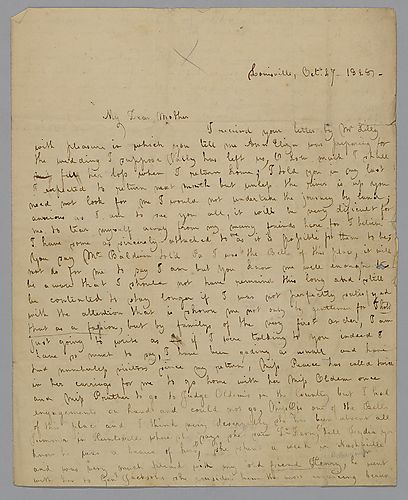 Louisville, Oct. 27. 1828.
My Dear Mother
I received your letter by Mr Tilly
with pleasure in which you tell me Ann Eliza was preparing for
the wedding I suppose Sally has left us, O how much I shall
feel her loss when I return home; I told you in my last
I expected to return next month but unless the river is up you
need not look for me I would not undertake the journey by land,
anxious as I am to see you all, it will be very difficult for
me to tear myself away from my many friends here for I believe
I have some as sincerely attached to as it is possible for them to be,
You say Mr Baldwin told Pa I was the Belle of the place, it will
not do for me to say I am but you know me well enough to
be aware that I should not have remained this long and still
be contented to stay longer if I was not perfectly satisfied
with the attention that is shown me not only by gentlemen for I
that as a but by familys of the very first order, I am
just going to write as if I were talking to you indeed I
have so much to say, I have been as usual and have
had numberless visitors since my return, Miss Pearce has called twice
in her carriage for me to go home with her Miss Oldham once
and Miss Prather to go to Judge Oldhams in the country but I had
engagements and could not go, one of the Belles
of the place and I think very deservedly so has been almost all
summer in Huntsville
know to pass a she spent a week in Nashville
and was very much pleased with my old friend he went
with her to Genl Jacksons she considers him the most